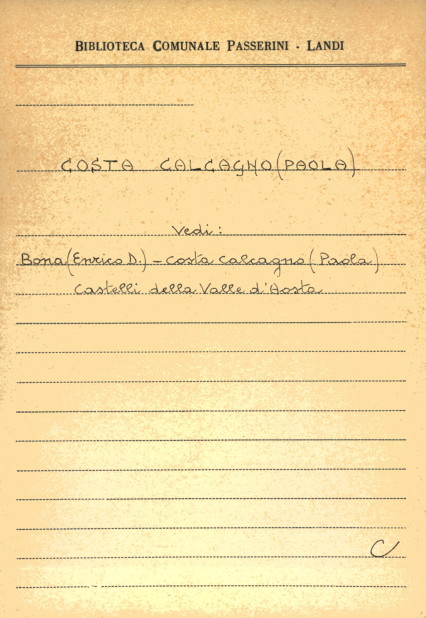 BIBLIOTECA COMUNALE PASSERINI - LANDI
COSTA CALCAGNO (PAOLA)
Vedi:
Bona (Enrico D.) - Costa Calcagno (Paola)
Castelli della Valle d'Aosta
C